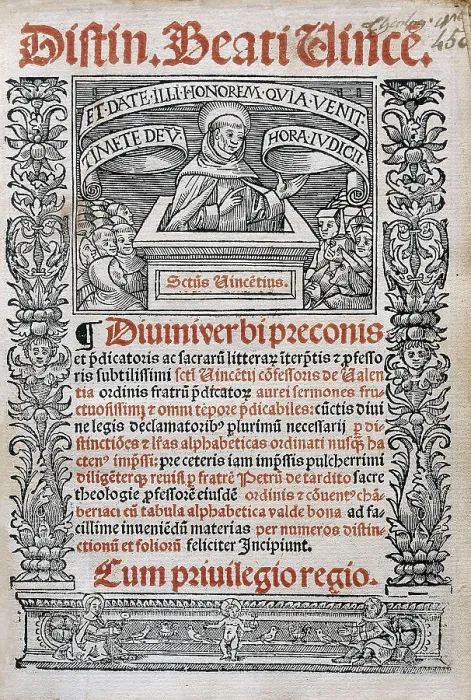 Distin. Beati Uincē.
ET·DATE·ILLI·HONOREM·QVIA·VENIT·
TIMETE DEV̄
HORA·IVDICII·
Sctūs Uincētius.
¶ Diuini verbi preconis
et p̄dicatoris ac sacrarū litteraꝝ īterp̄tis ⁊ ꝓfesso
ris subtilissimi sctī Uincētij cōfessoris de Ualen
tia ordinis fratrū p̄dicatoꝝ aurei sermones fru-
ctuosissimi ⁊ omni tēpore p̄dicabiles: cūctis diui
ne legis declamatoribꝰ plurimū necessarij ꝑ di-
stinctiōes ⁊ lr̄as alphabeticas ordinati nusꝗ̄ ha
ctenꝰ imp̄ssi: pre ceteris iam imp̄ssis pulcherrimi
diligēterqꝫ reuisi ꝑ fratrē Petrū de tardito sacre
theologie ꝓfessorē eiusdē ordinis ⁊ cōuentꝰ chā-
beriaci cū tabula alphabetica valde bona ad fa-
cillime inueniēdū materias per numeros distin-
ctionū et foliorū feliciter Incipiunt.
Cum priuilegio regio.